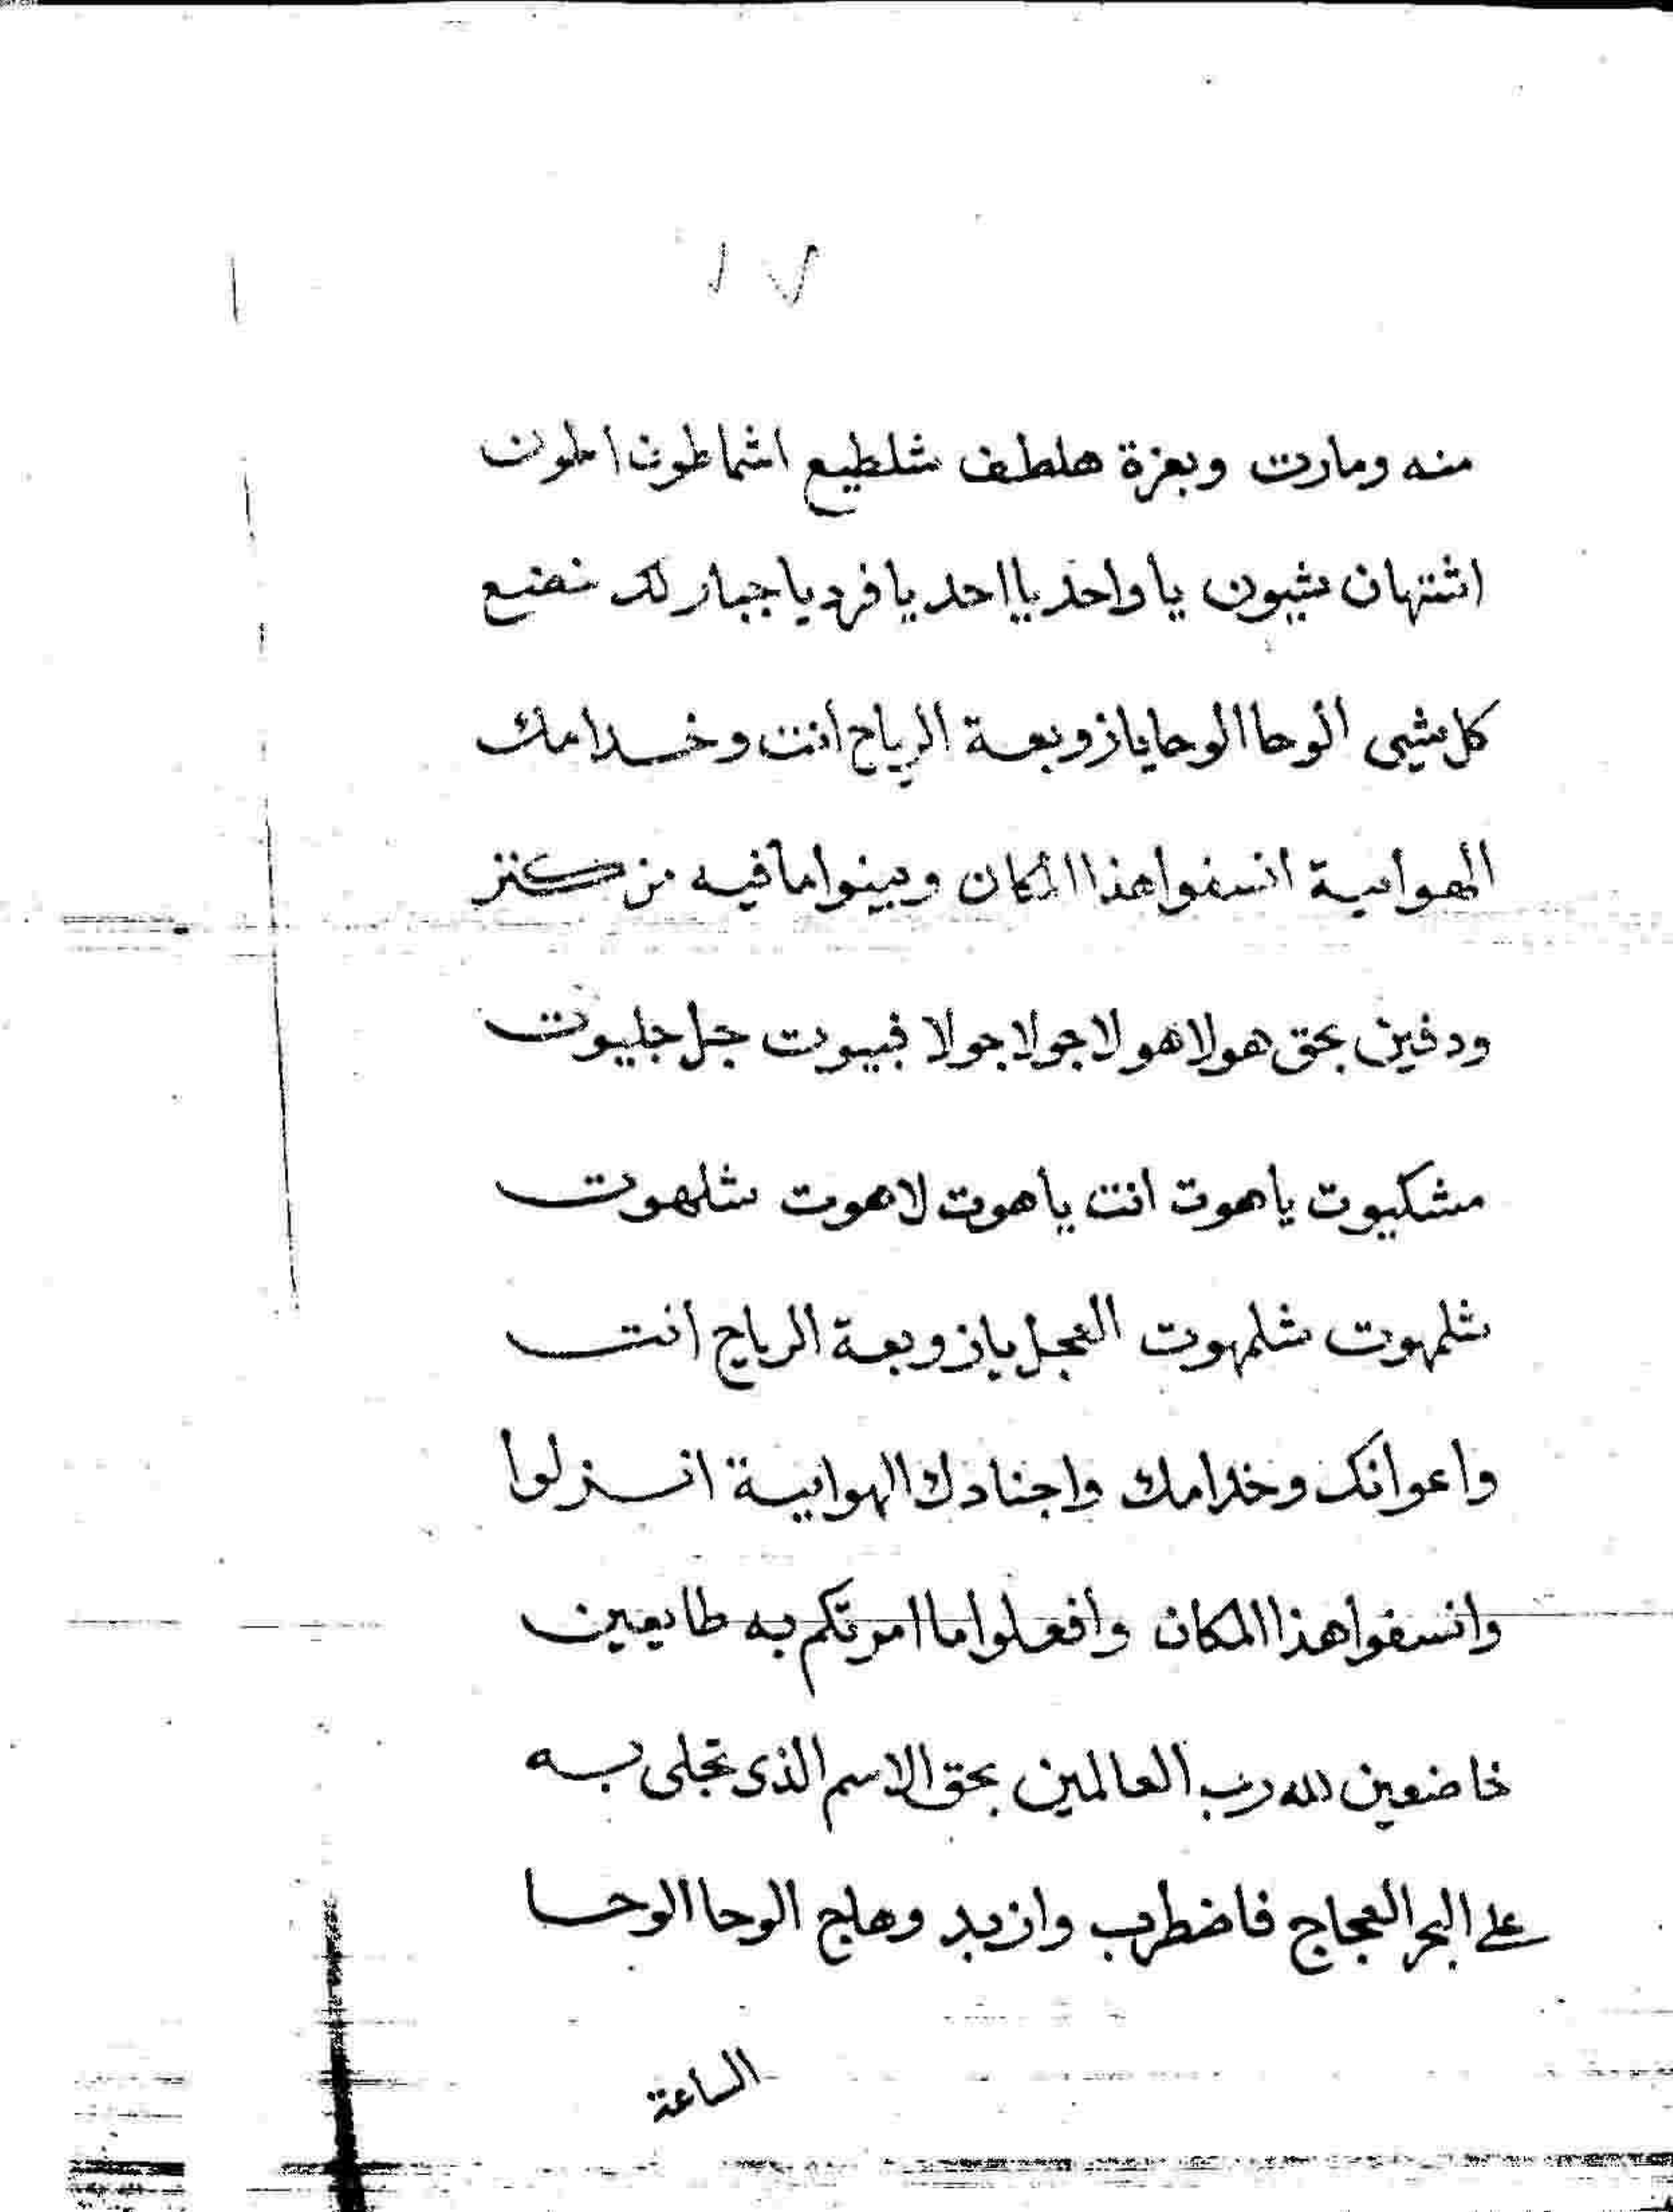 ١٧
منه ومارت وبعزة هلطف شلطيع اشماطون اطون
اشتهان شبون يا واحد يا احد يا فرد يا جبار لك خضع
كل شيى الوحا الوحا يا زوبعة الرياح انت وخدامك
الهوايية انسفوا هذا المكان وبينوا ما فيه من كنز
ودفين بحق هولا هولا جولا جولا فبيوت جل جليوت
مشكيوت ياهوت انت ياهوت لاهوت شلهوت
شلمهوت شلمهوت العجل يا زوبعة الرياح انت
واعوانك وخدامك واجنادك الهوايية انزلوا
وانسفوا هذا المكان وافعلوا ما امرتكم به طايعين
خاضعين لله رب العالمين بحق الاسم الذى تجلى به
على البحر العجاج فاضطرب وازبد وهاج الوحا الوحا
الساعة